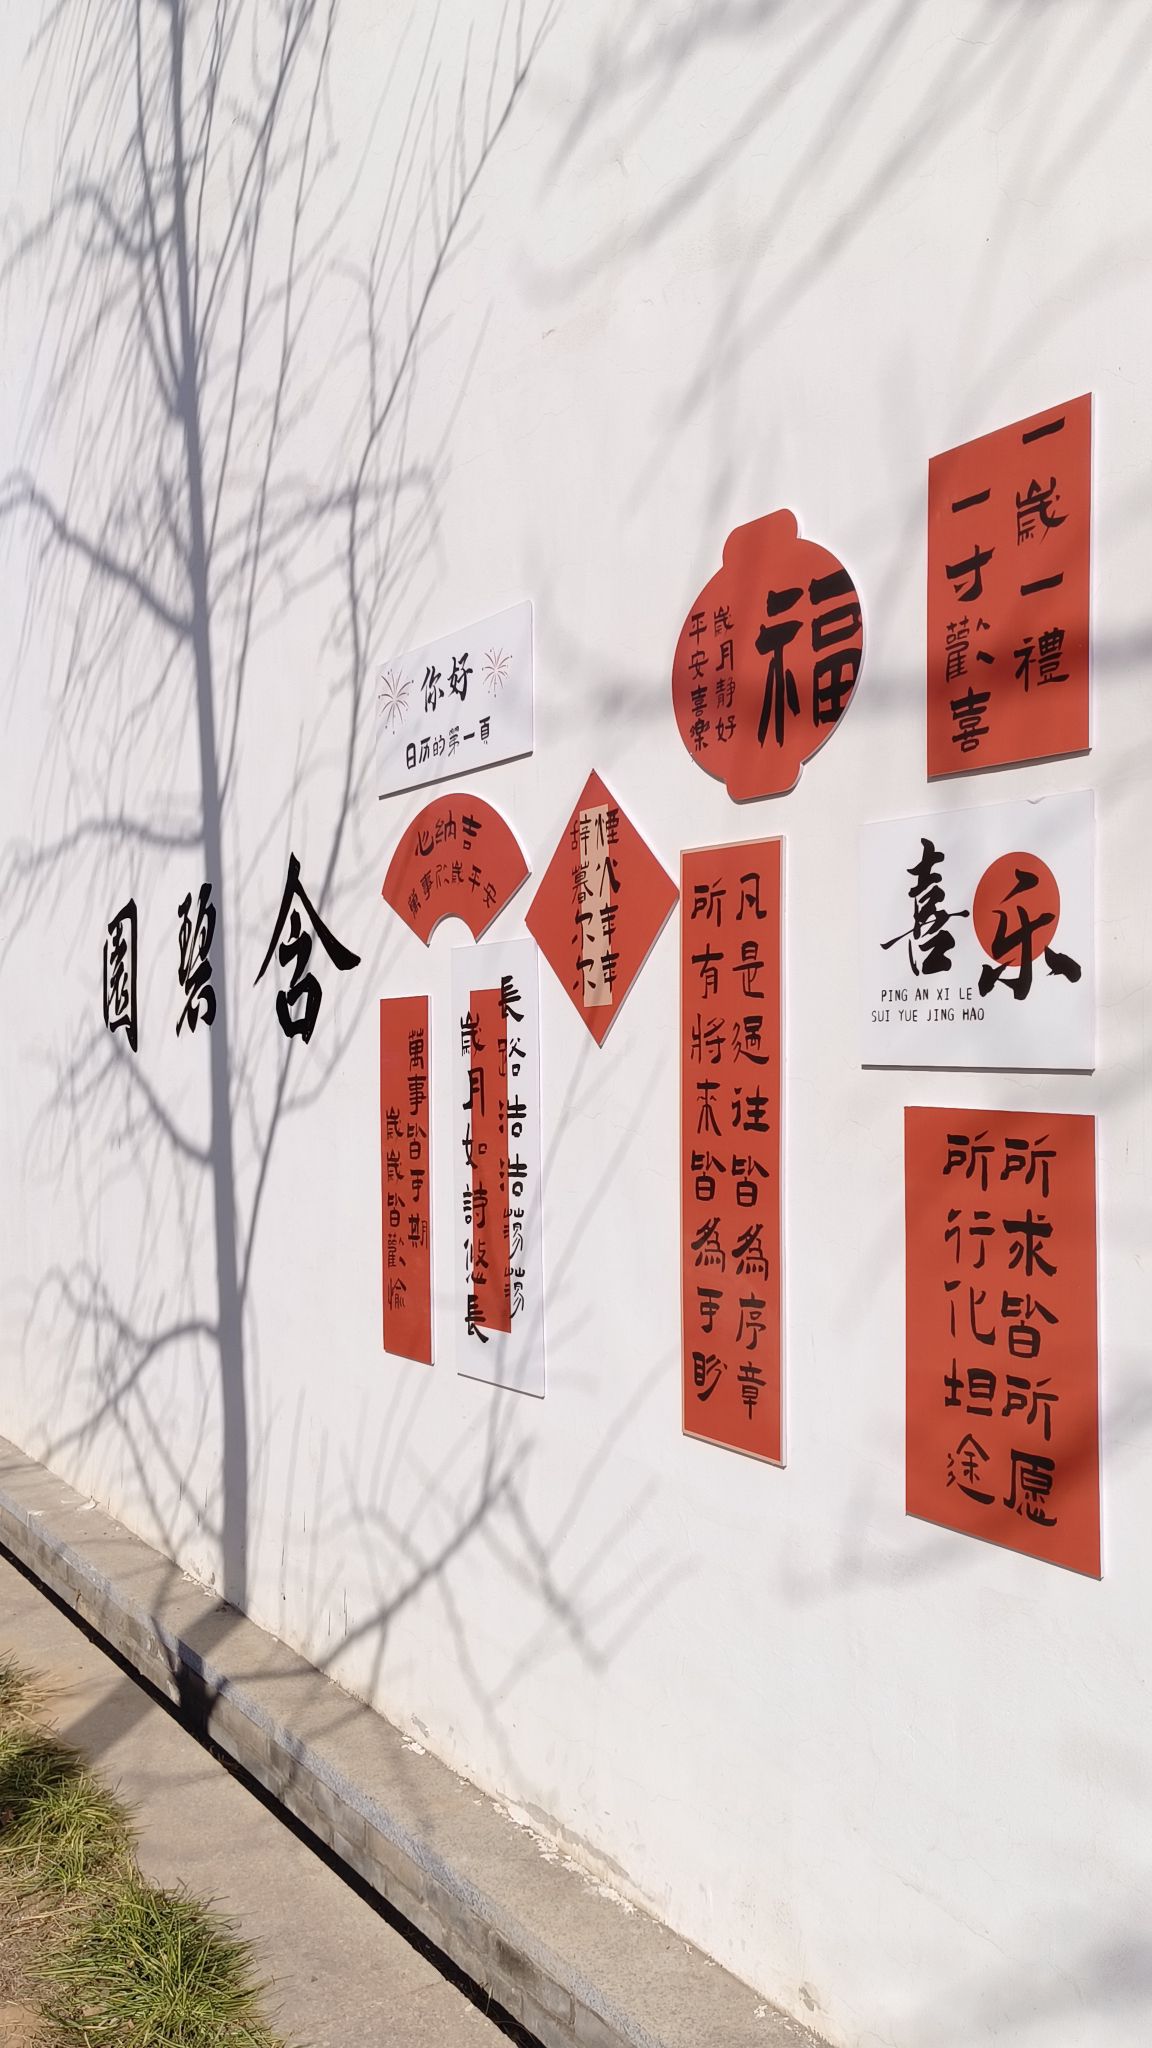 含碧園
你好
日历的第一頁
心纳吉
萬事欣歲平安
煙火年年
辞暮尔尔
福
歲月静好
平安喜樂
一歲一禮
一寸歡喜
喜乐
PING AN XI LE
SUI YUE JING HAO
萬事皆可期
歲歲皆歡愉
長路浩浩蕩蕩
歲月如詩悠長
凡是過往皆為序章
所有將来皆為可盼
所求皆所愿
所行化坦途